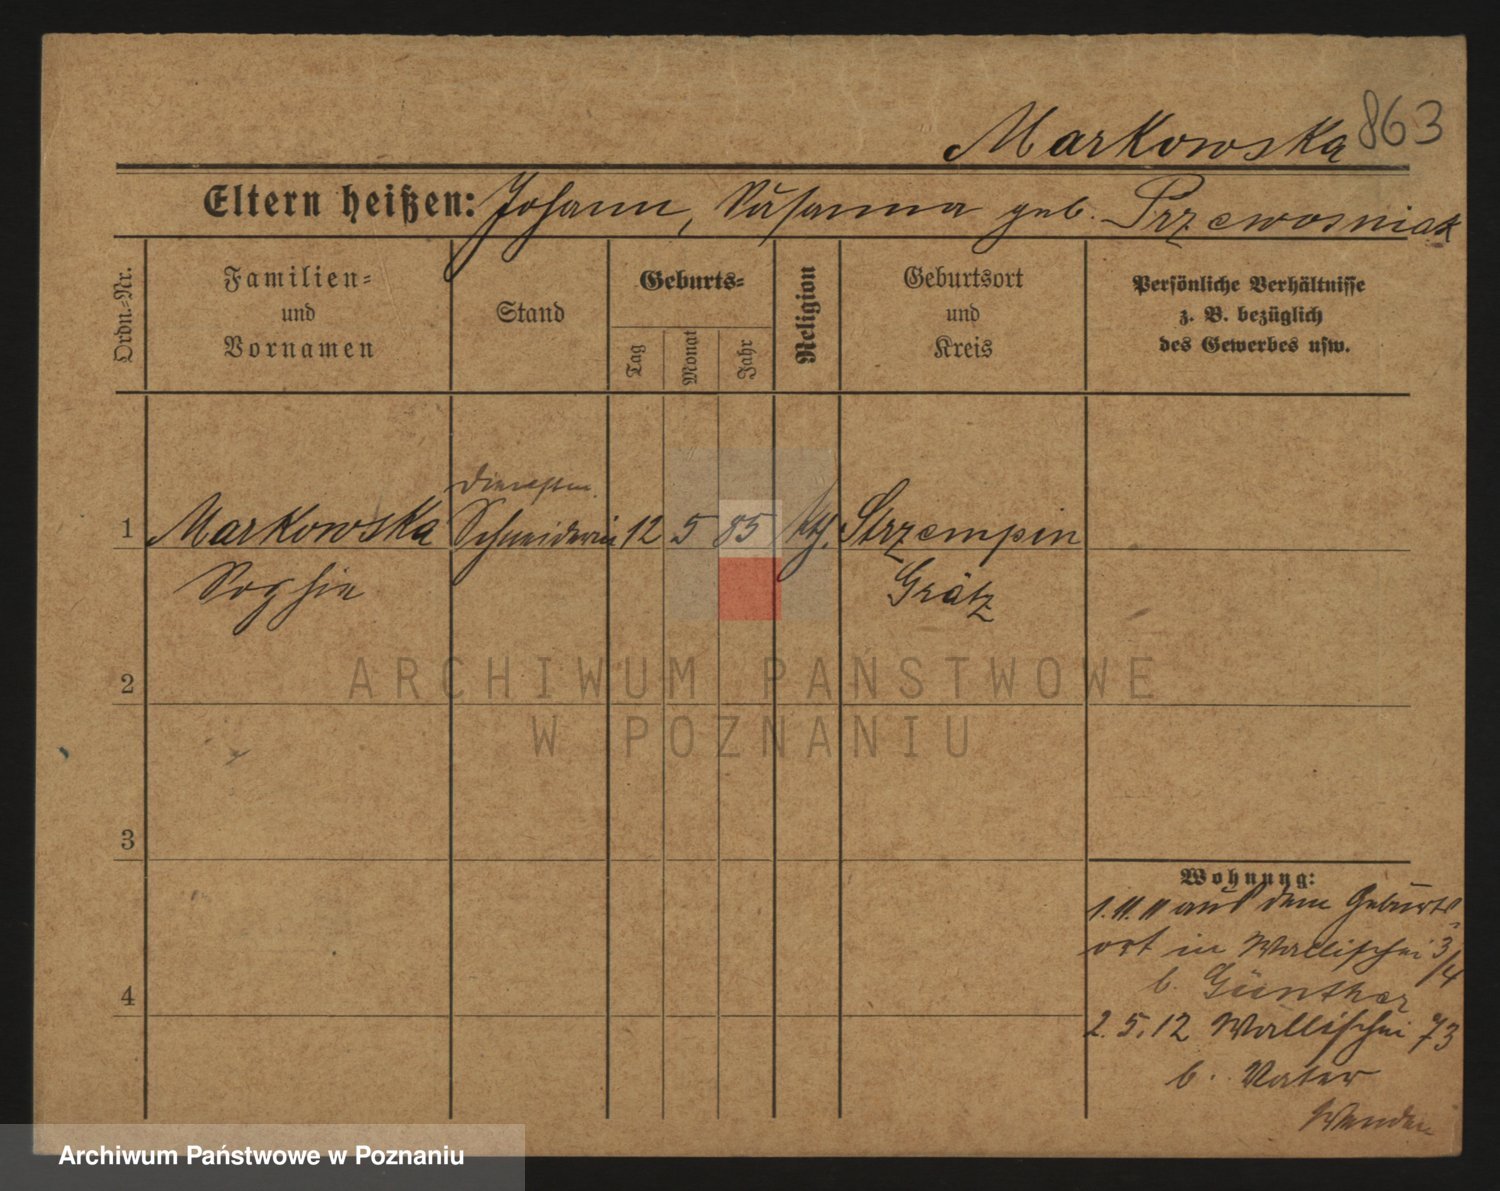 Markowska 863
Eltern heißen: Johann, Susanna geb. Przewosniak
Ordn.-Nr.
Familien-
und
Vornamen
Stand
Geburts-
Tag
Monat
Jahr
Religion
Geburtsort
und
Kreis
Persönliche Verhältnisse
z. B. bezüglich
des Gewerbes usw.
Dienstm.
1 Markowska Schneiderin 12 5 85 kth. Strzempin
Sophie Grätz
2
ARCHIWUM PAŃSTWOWE
W POZNANIU
3
Wohnung:
1.11.11 aus dem Geburts-
ort in Wallischei 3/4
b. Günther
4
2.5.12 Wallischei 73
b. Vater
Wenden
Archiwum Państwowe w Poznaniu